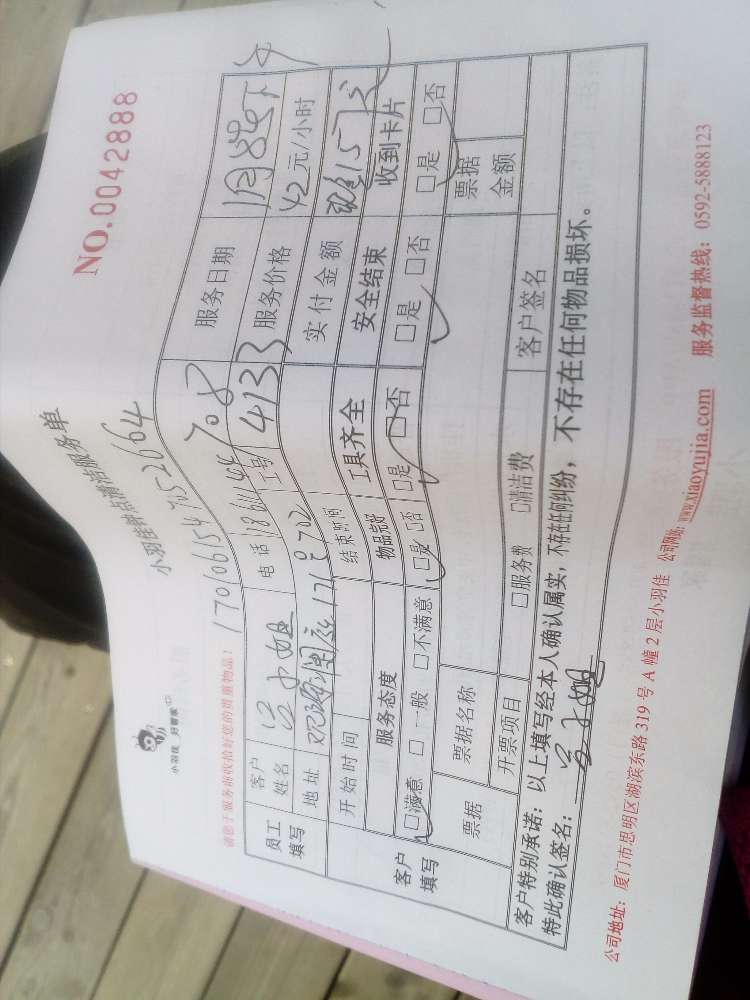 NO.0042888
小羽佳 好管家
小羽佳钟点清洁服务单
请您于服务前收拾好您的贵重物品！
1701061547052664
员工填写
客户姓名 小姐 电话 服务日期
地址 702 工号 4133 服务价格 42元/小时
开始时间 结束时间 实付金额
客户填写
服务态度 物品完好 工具齐全 安全结束 收到卡片
□满意 □一般 □不满意 □是 □否 □是 □否 □是 □否 □是 □否
票据 票据名称 票据金额
开票项目 □服务费 □清洁费 客户签名
客户特别承诺：以上填写经本人确认属实，不存在任何纠纷，不存在任何物品损坏。
特此确认签名：
公司地址：厦门市思明区湖滨东路319号A幢2层小羽佳 公司网站：www.xiaoyujia.com 服务监督热线：0592-5888123